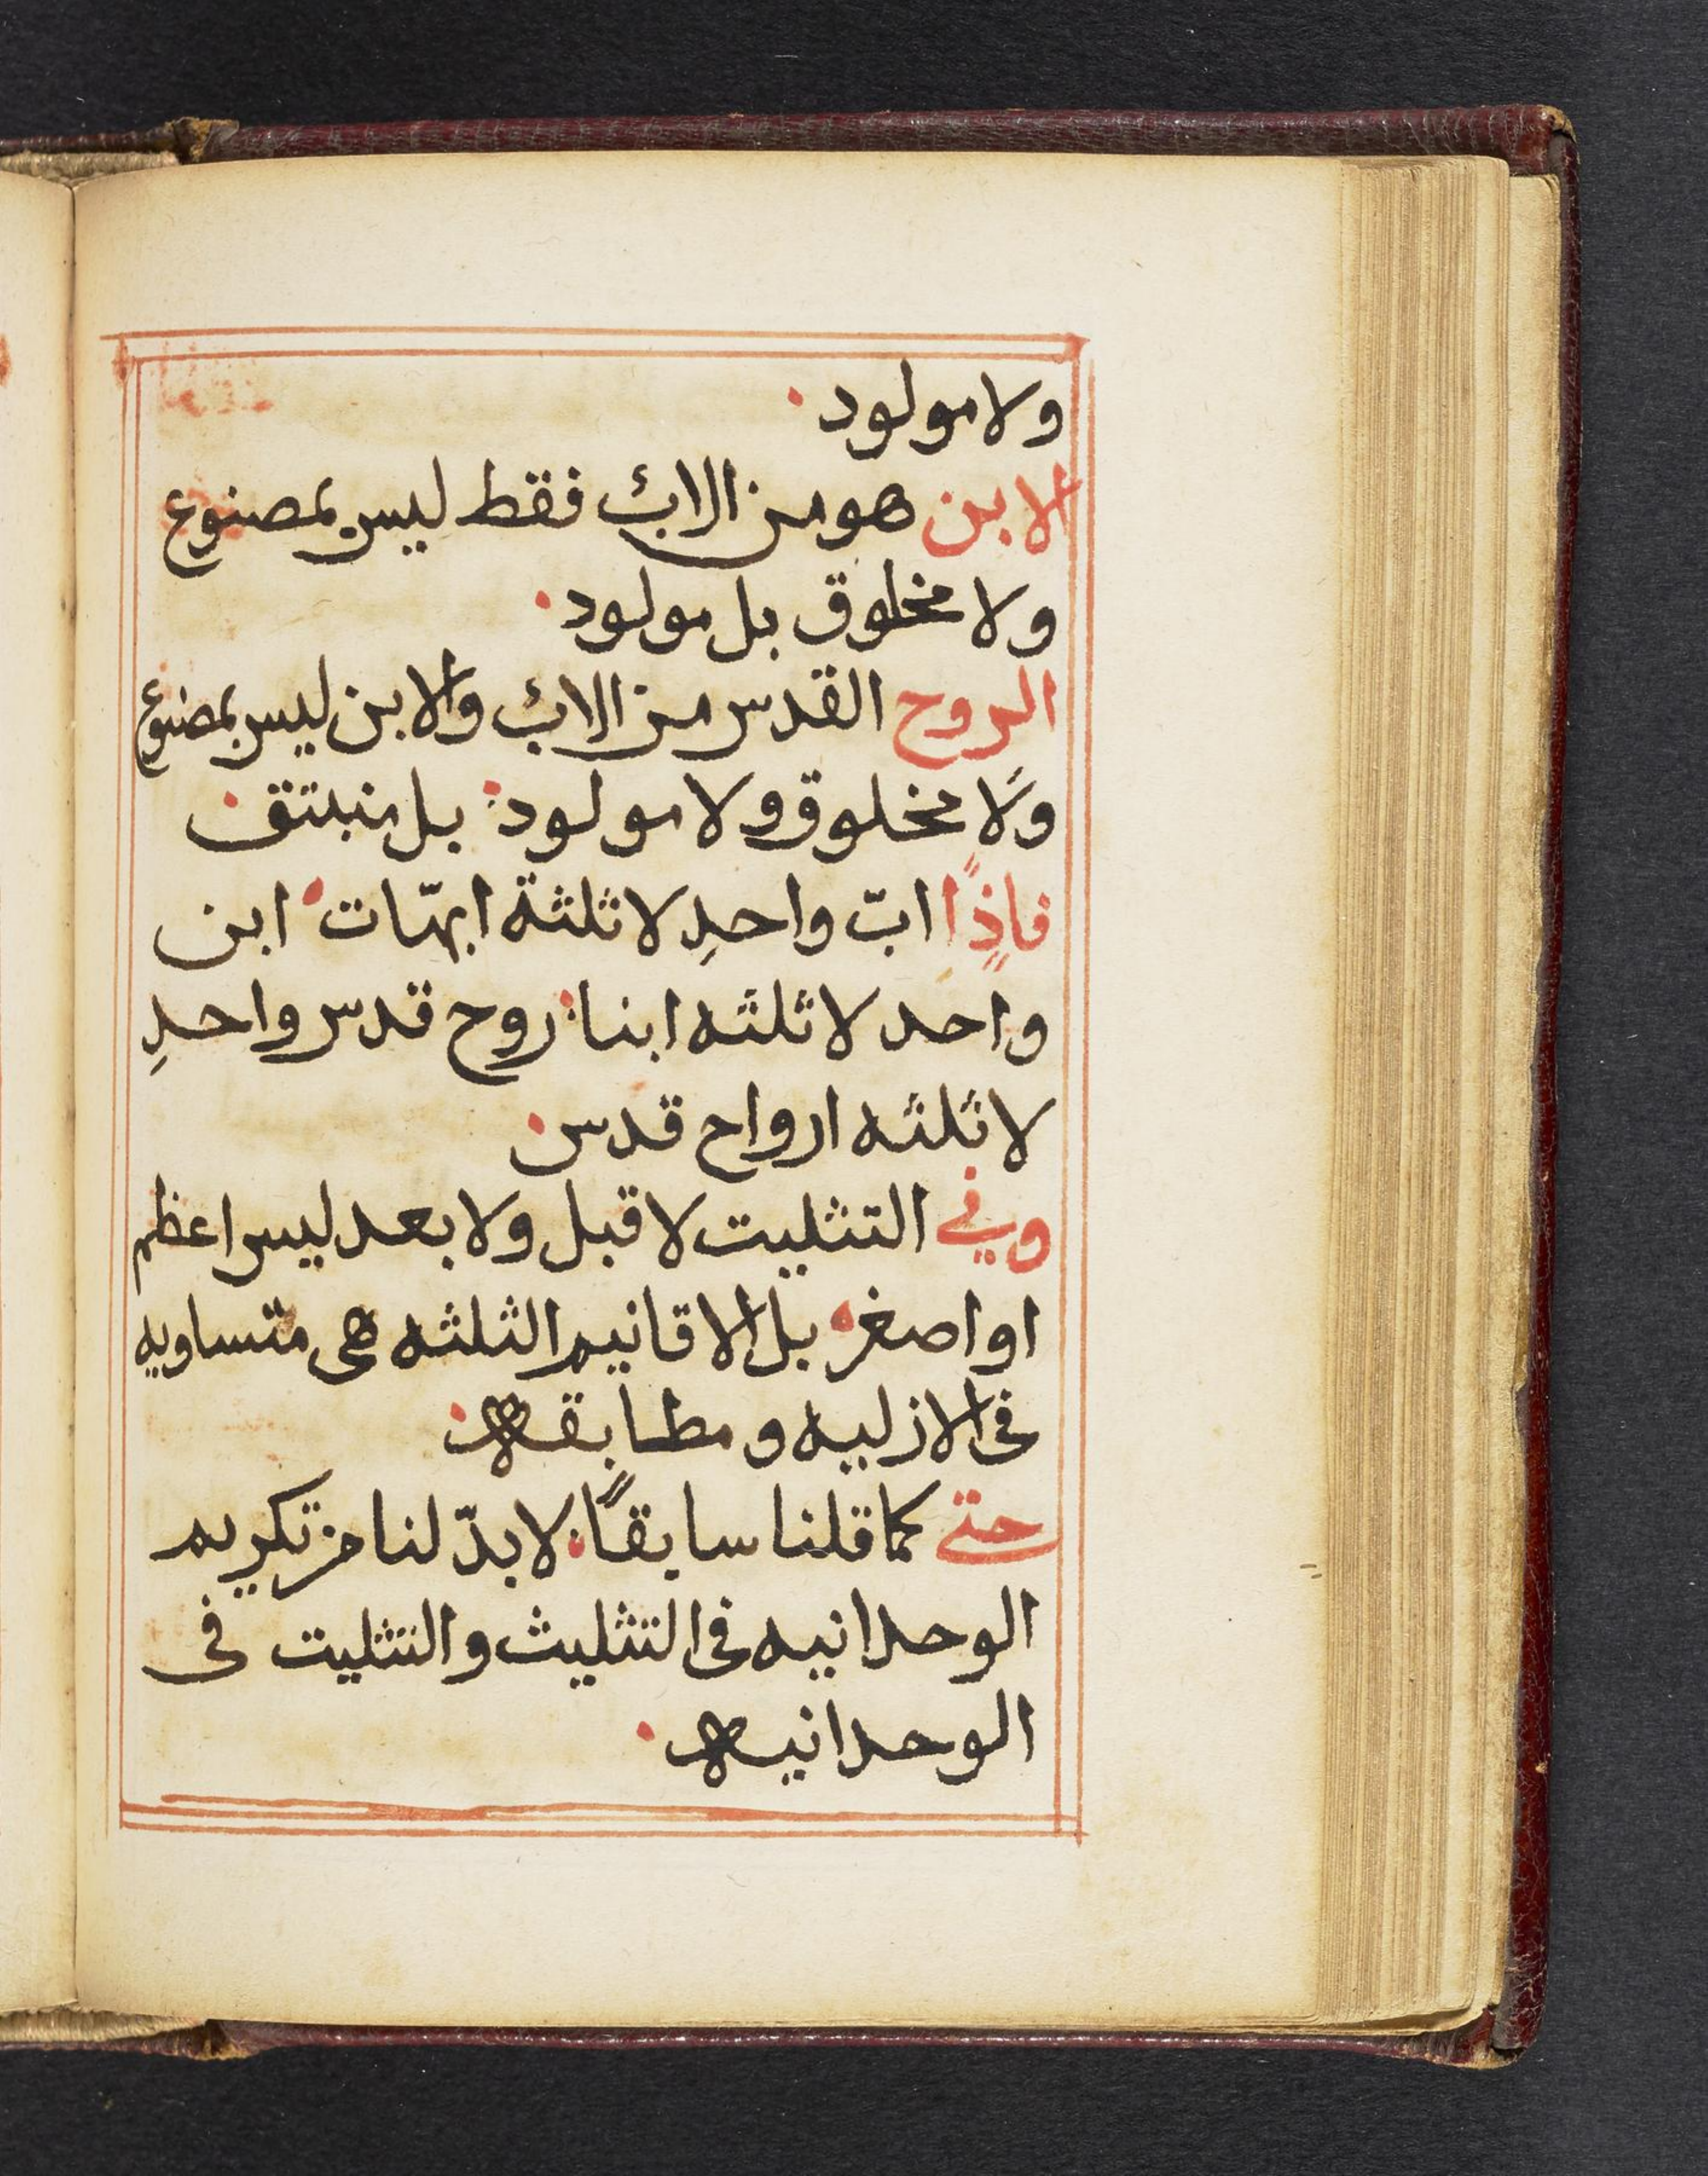 ولا مولود.
الابن هو من الاب فقط ليس بمصنوع
ولا مخلوق بل مولود.
الروح القدس من الاب والابن ليس بمصنوع
ولا مخلوق ولا مولود: بل منبتق.
فاذًا ابّ واحدِ لا ثلثة ابهّات. ابن
واحد لا ثلثه ابنا: روح قدس واحدِ
لا ثلثه ارواح قدس.
وفي التثليت لا قبل ولا بعد ليس اعظم
او اصغر. بل الاقانيم الثلثه هى متساويه
فى الازليه ومطابقه.
حتى كما قلنا سابقًا: لا بدّ لنا من تكريم
الوحدانيه فى التثليث والتثليت فى
الوحدانيه.